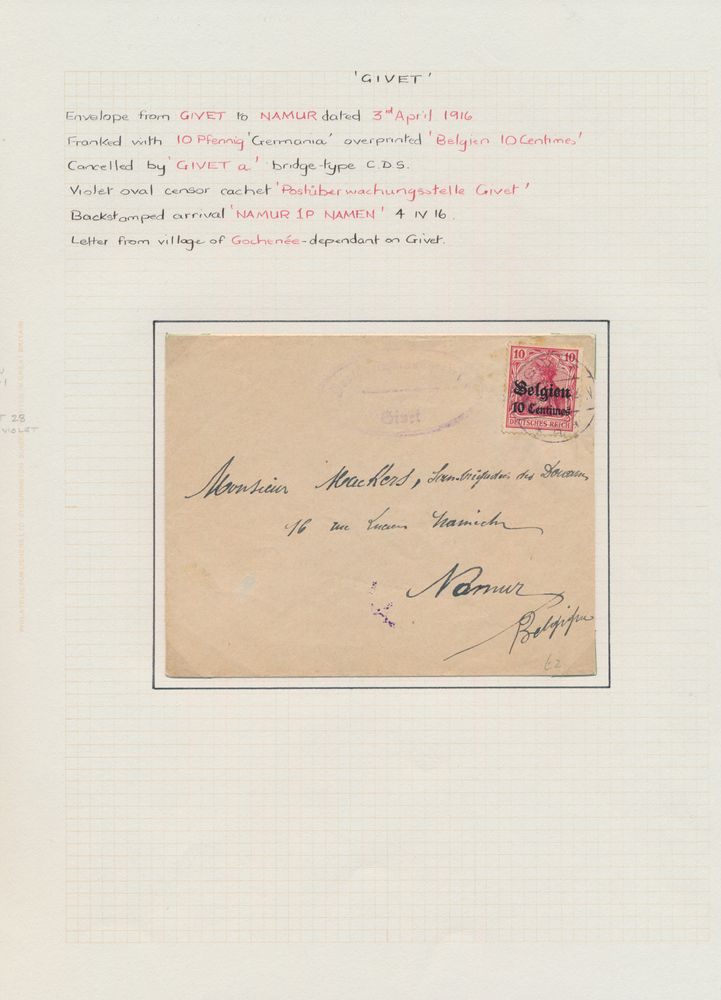 'GIVET'
Envelope from GIVET to NAMUR dated 3rd April 1916
Franked with 10 Pfennig 'Germania' overprinted 'Belgien 10 Centimes'
Cancelled by 'GIVET a' bridge-type C.D.S.
Violet oval censor cachet 'Postüberwachungsstelle Givet'
Backstamped arrival 'NAMUR 1P NAMEN' 4 IV 16.
Letter from village of Gochenée - dependant on Givet.
10 10
Belgien
10 Centimes
DEUTSCHES REICH
Givet
Monsieur Mackers, des Douanes
16 rue Lucien Namèche
Namur
Belgique
62
T 28
VIOLET